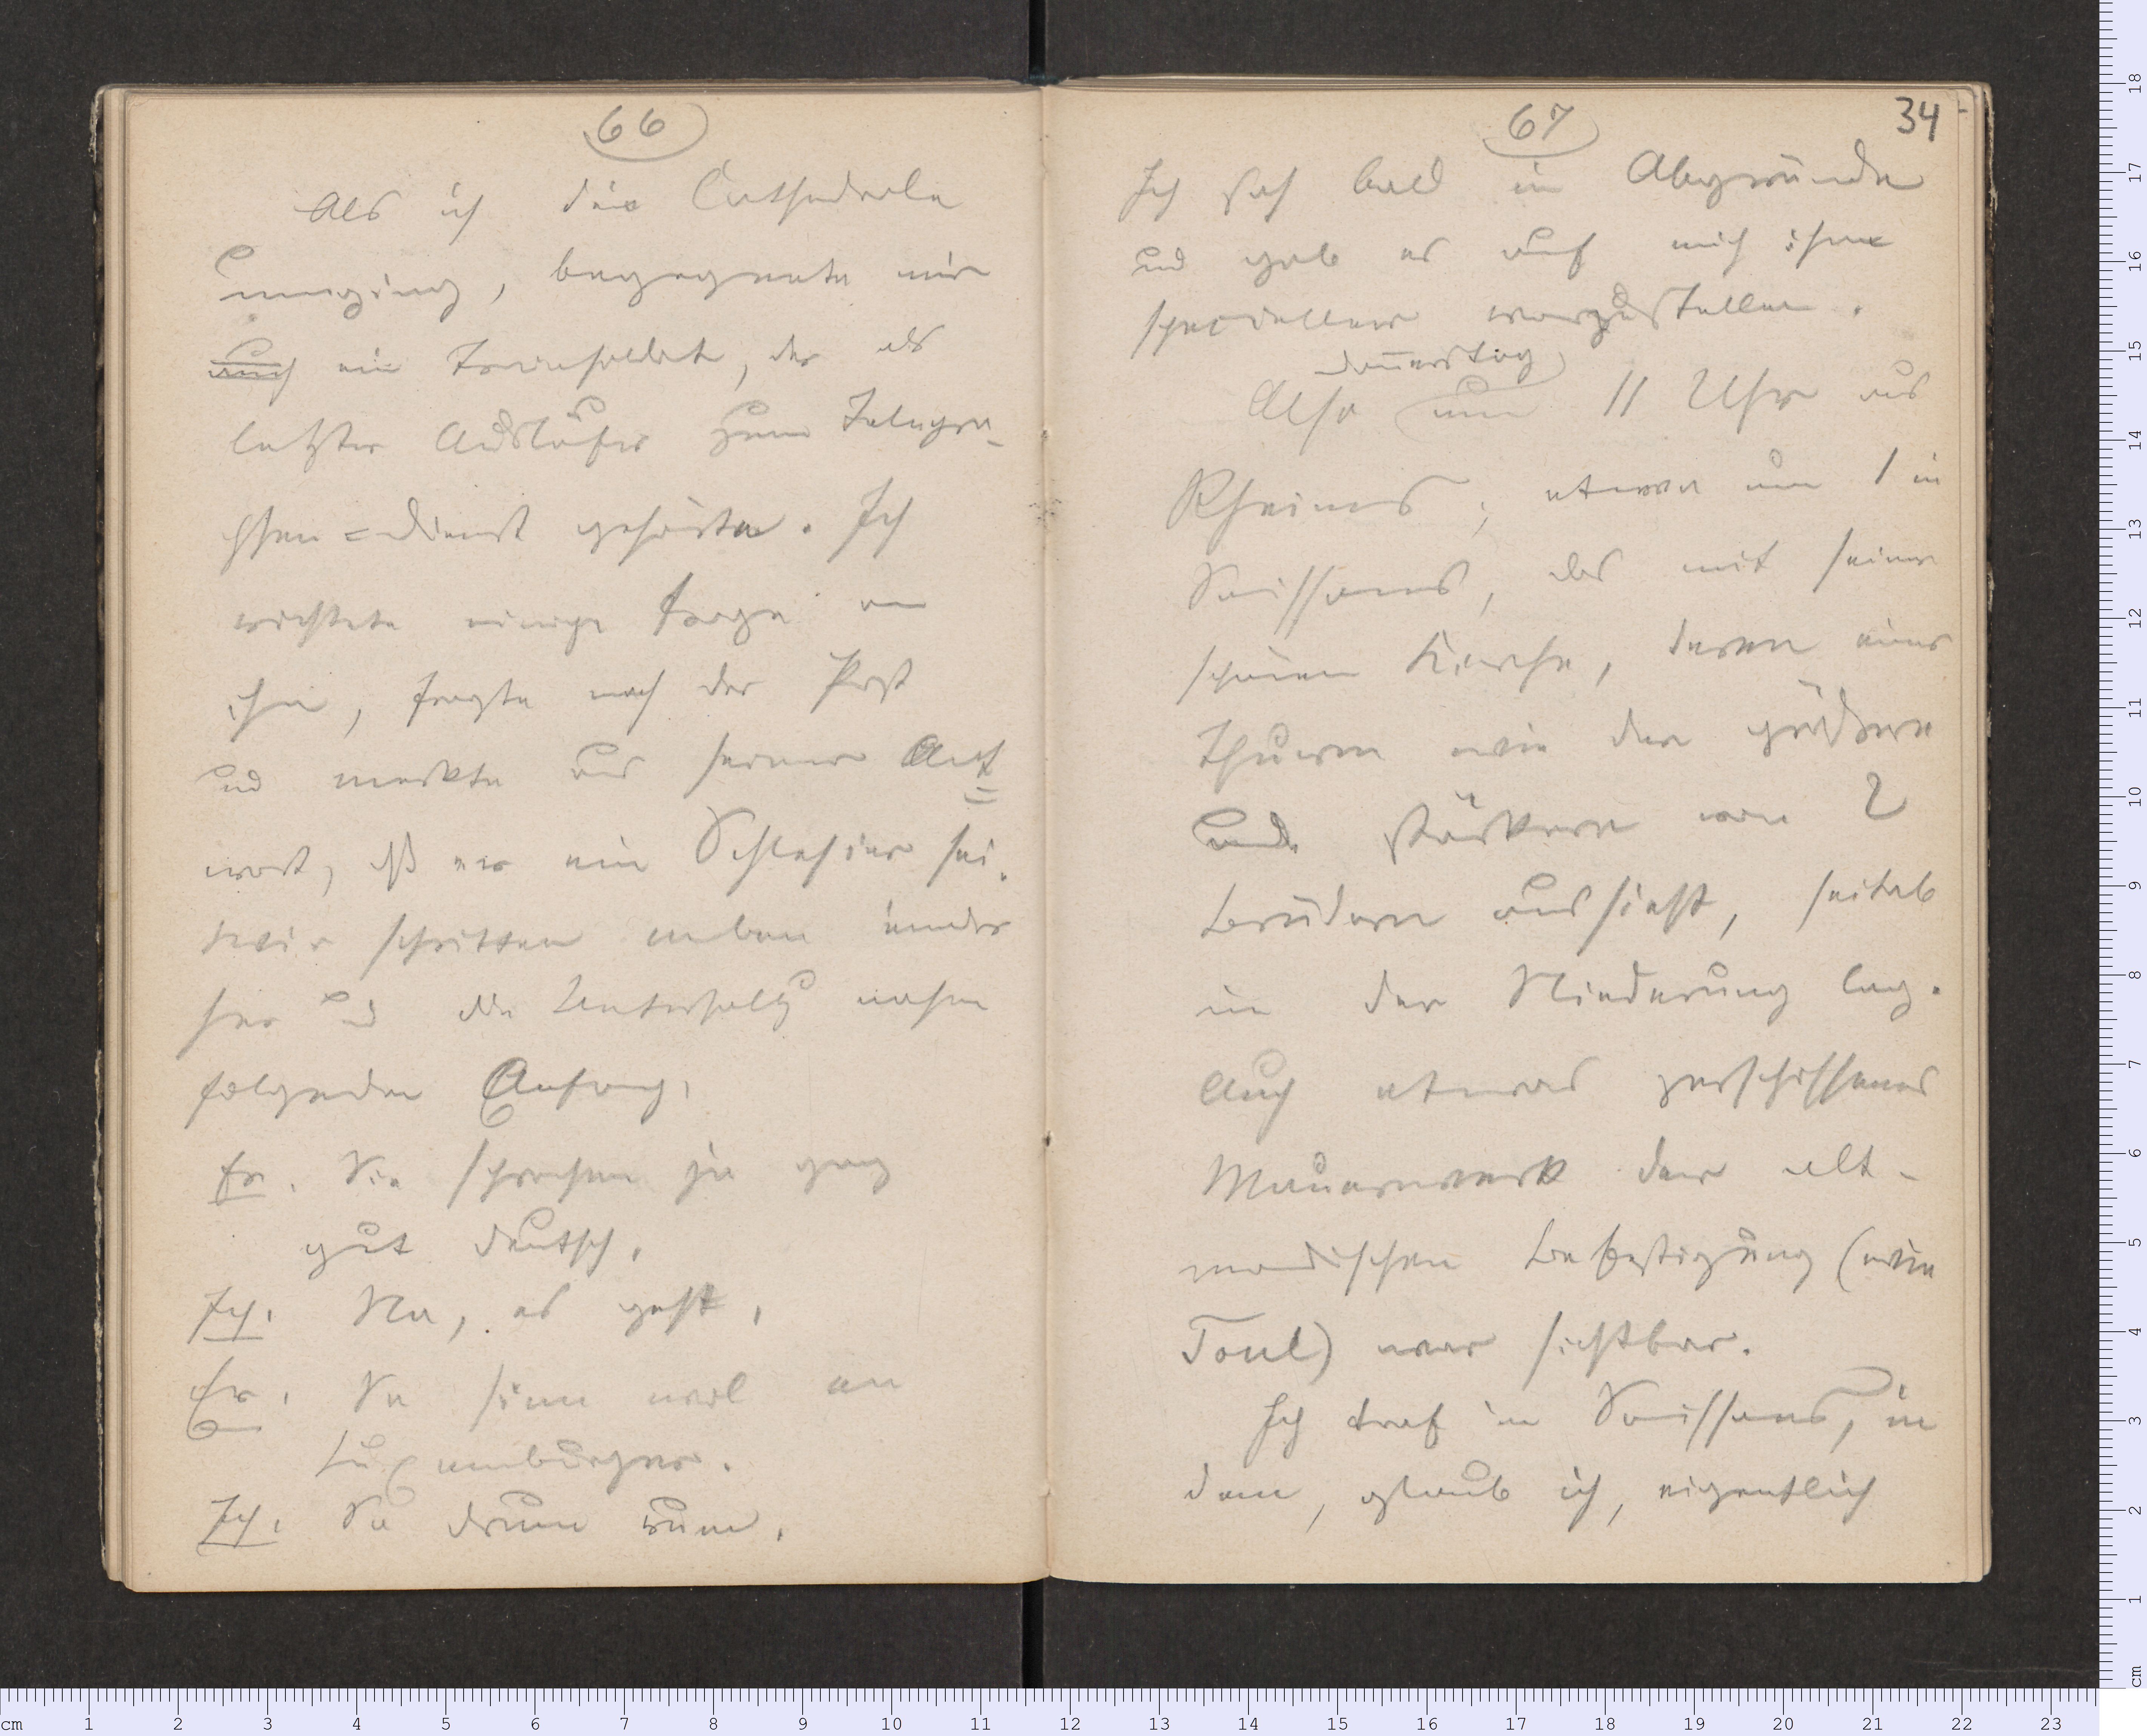 66
Als ich die Cathedrale
umging, begegnete mir
auch ein Trainsoldat, der als
letzter Ausläufer zum Telegra-
phen=dienst gehörte. Ich
richtete einige Frage an
ihn, fragte nach der Post
und merkte aus seiner Ant
wort, daß er ein Schlesier sei.
Wir schritten neben einander
her und die Unterhaltg nahm
folgenden Anfang.
Er. Sie sprechen ja ganz
gut deutsch.
Ich. Na, es geht.
Er. Se sinn wol en
Luxemburger.
Ich. So drum rum.
67
34
Ich sah bald in Abgründe
und gab es auf mich ihm
specieller vorzustellen.
Donnerstag
Also um 11 Uhr aus
Rheims; etwa um 1 in
Soissons, das mit seiner
schönen Kirche, deren einer
Thurm wie der größere
und stärkere von 2
Brüdern aussieht, seitab
in der Niederung lag.
Auch etwas zerschossenes
Mauerwerk der alt-
modischen Befestigung (wie
Toul) war sichtbar.
Ich traf in Soissons, in
dem, glaub ich, eigentlich